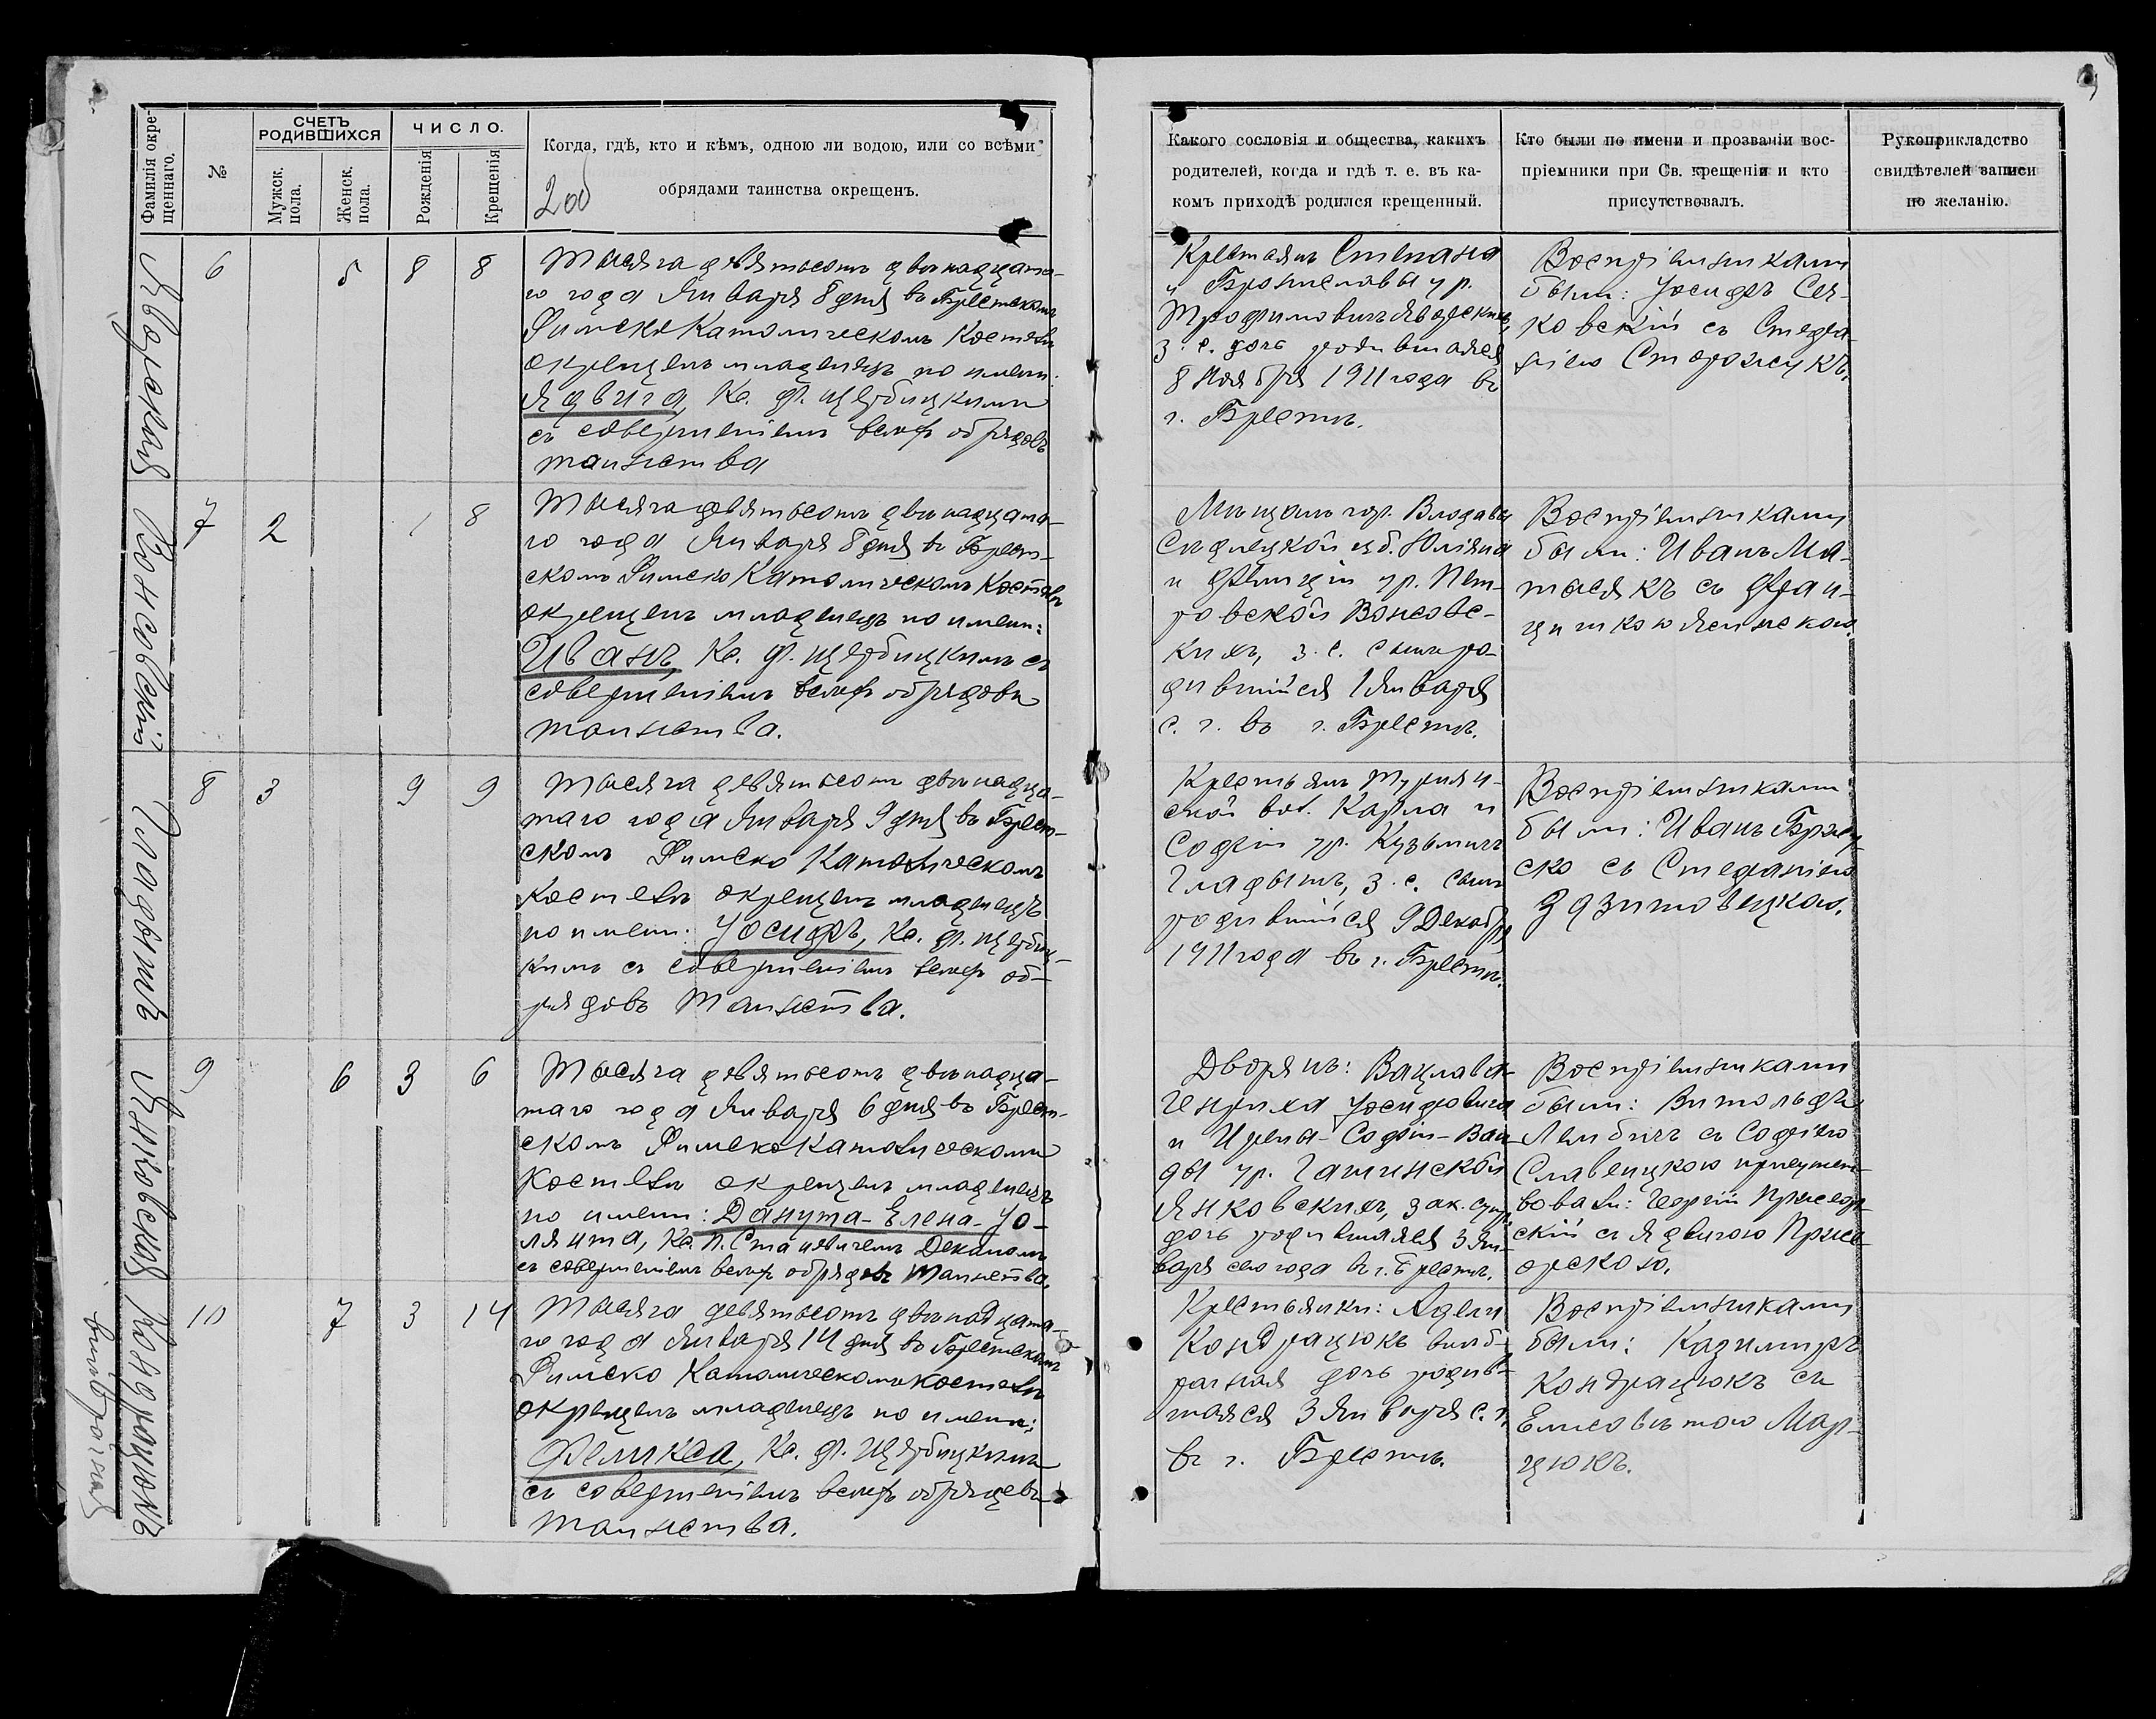 Фамилія окре-
щеннаго.
№
СЧЕТЪ
РОДИВШИХСЯ
Мужск.
пола.
Женск.
пола.
ЧИСЛО.
Рожденія
Крещенія
Когда, гдѣ, кто и кѣмъ, одною ли водою, или со всѣми
обрядами таинства окрещенъ.
200
Какого сословія и общества, какихъ
родителей, когда и гдѣ т. е. въ ка-
комъ приходѣ родился крещенный.
Кто были по имени и прозваніи вос-
пріемники при Св. крещеніи и кто
присутствовалъ.
Рукоприкладство
свидѣтелей записи
по желанію.
6 5 8 8
Тысяча девятьсотъ двѣнадцата-
го года Января 8 дня въ Брестскомъ
Римско Католическомъ Костелѣ
окрещенъ младенецъ по имени:
Ядвига, Кс. Ф. Щербицкимъ
съ совершеніемъ всѣхъ обрядовъ
таинства
Крестьянъ Степана
и Брониславы ур.
Трофимовичъ
з. с. дочь родившаяся
8 Ноября 1911 года въ
г. Брестѣ.
Воспріемниками
были: Іосифъ Сея-
ковскій съ Стефа-
ніею Сторожукъ.
Вонсовскій
7 2 1 8
Тысяча девятьсотъ двѣнадцата-
го года Января 8 дня въ Брест-
скомъ Римско Католическомъ Костелѣ
окрещенъ младенецъ по имени:
Иванъ, Кс. Ф. Щербицкимъ съ
совершеніемъ всѣхъ обрядовъ
таинства.
Мѣщанъ гор. Влодавы
Сѣдлецкой губ. Юліана
и Фелиціи ур. Пет-
ровской Вонсовс-
кихъ, з. с. сынъ ро-
дившійся 1 Января
с. г. въ г. Брестѣ.
Воспріемниками
были: Иванъ Ма-
тысякъ съ Фран-
цишкою
Гладышъ
8 3 9 9
Тысяча девятьсотъ двѣнадца-
таго года Января 9 дня въ Брест-
скомъ Римско Католическомъ
Костелѣ окрещенъ младенецъ
по имени: Іосифъ, Кс. Ф. Щербиц-
кимъ съ совершеніемъ всѣхъ об-
рядовъ Таинства.
Крестьянъ
вол. Карла и
Софіи ур. Кузьмичъ
Гладышъ, з. с. сынъ
родившійся 9 Декабря
1911 года въ г. Брестѣ.
Воспріемниками
были: Иванъ
съ Стефаніею
Здзитовецкою.
Янковская
9 6 3 6
Тысяча девятьсотъ двѣнадца-
таго года Января 6 дня въ Брест-
скомъ Римско Католическомъ
Костелѣ окрещенъ младенецъ
по имени: Данута-Елена-Іо-
лянта, Кс. П. Станевичемъ Деканомъ
съ совершеніемъ всѣхъ обрядовъ Таинства.
Дворянъ: Вацлава-
Генриха Іосифовича
и Ирены-Софіи-Ван-
ды ур. Гашинской
Янковскихъ, зак. супр.
дочь родившаяся 3 Ян-
варя сего года въ г. Брестѣ.
Воспріемниками
были: Витольдъ
Лембичъ съ Софіею
Славецкою присутст-
вовали: Георгій
съ Ядвигою

Кондрацюкъ
внѣбрачная
10 7 3 14
Тысяча девятьсотъ двѣнадцата-
го года Января 14 дня въ Брестскомъ
Римско Католическомъ Костелѣ
окрещенъ младенецъ по имени:
Феликса, Кс. Ф. Щербицкимъ
съ совершеніемъ всѣхъ обрядовъ
таинства.
Крестьянки: Адели
Кондрацюкъ внѣб-
рачная дочь родив-
шаяся 3 Января с. г.
въ г. Брестѣ.
Воспріемниками
были: Казимиръ
Кондрацюкъ съ
Елисаветою Мар-
цюкъ.